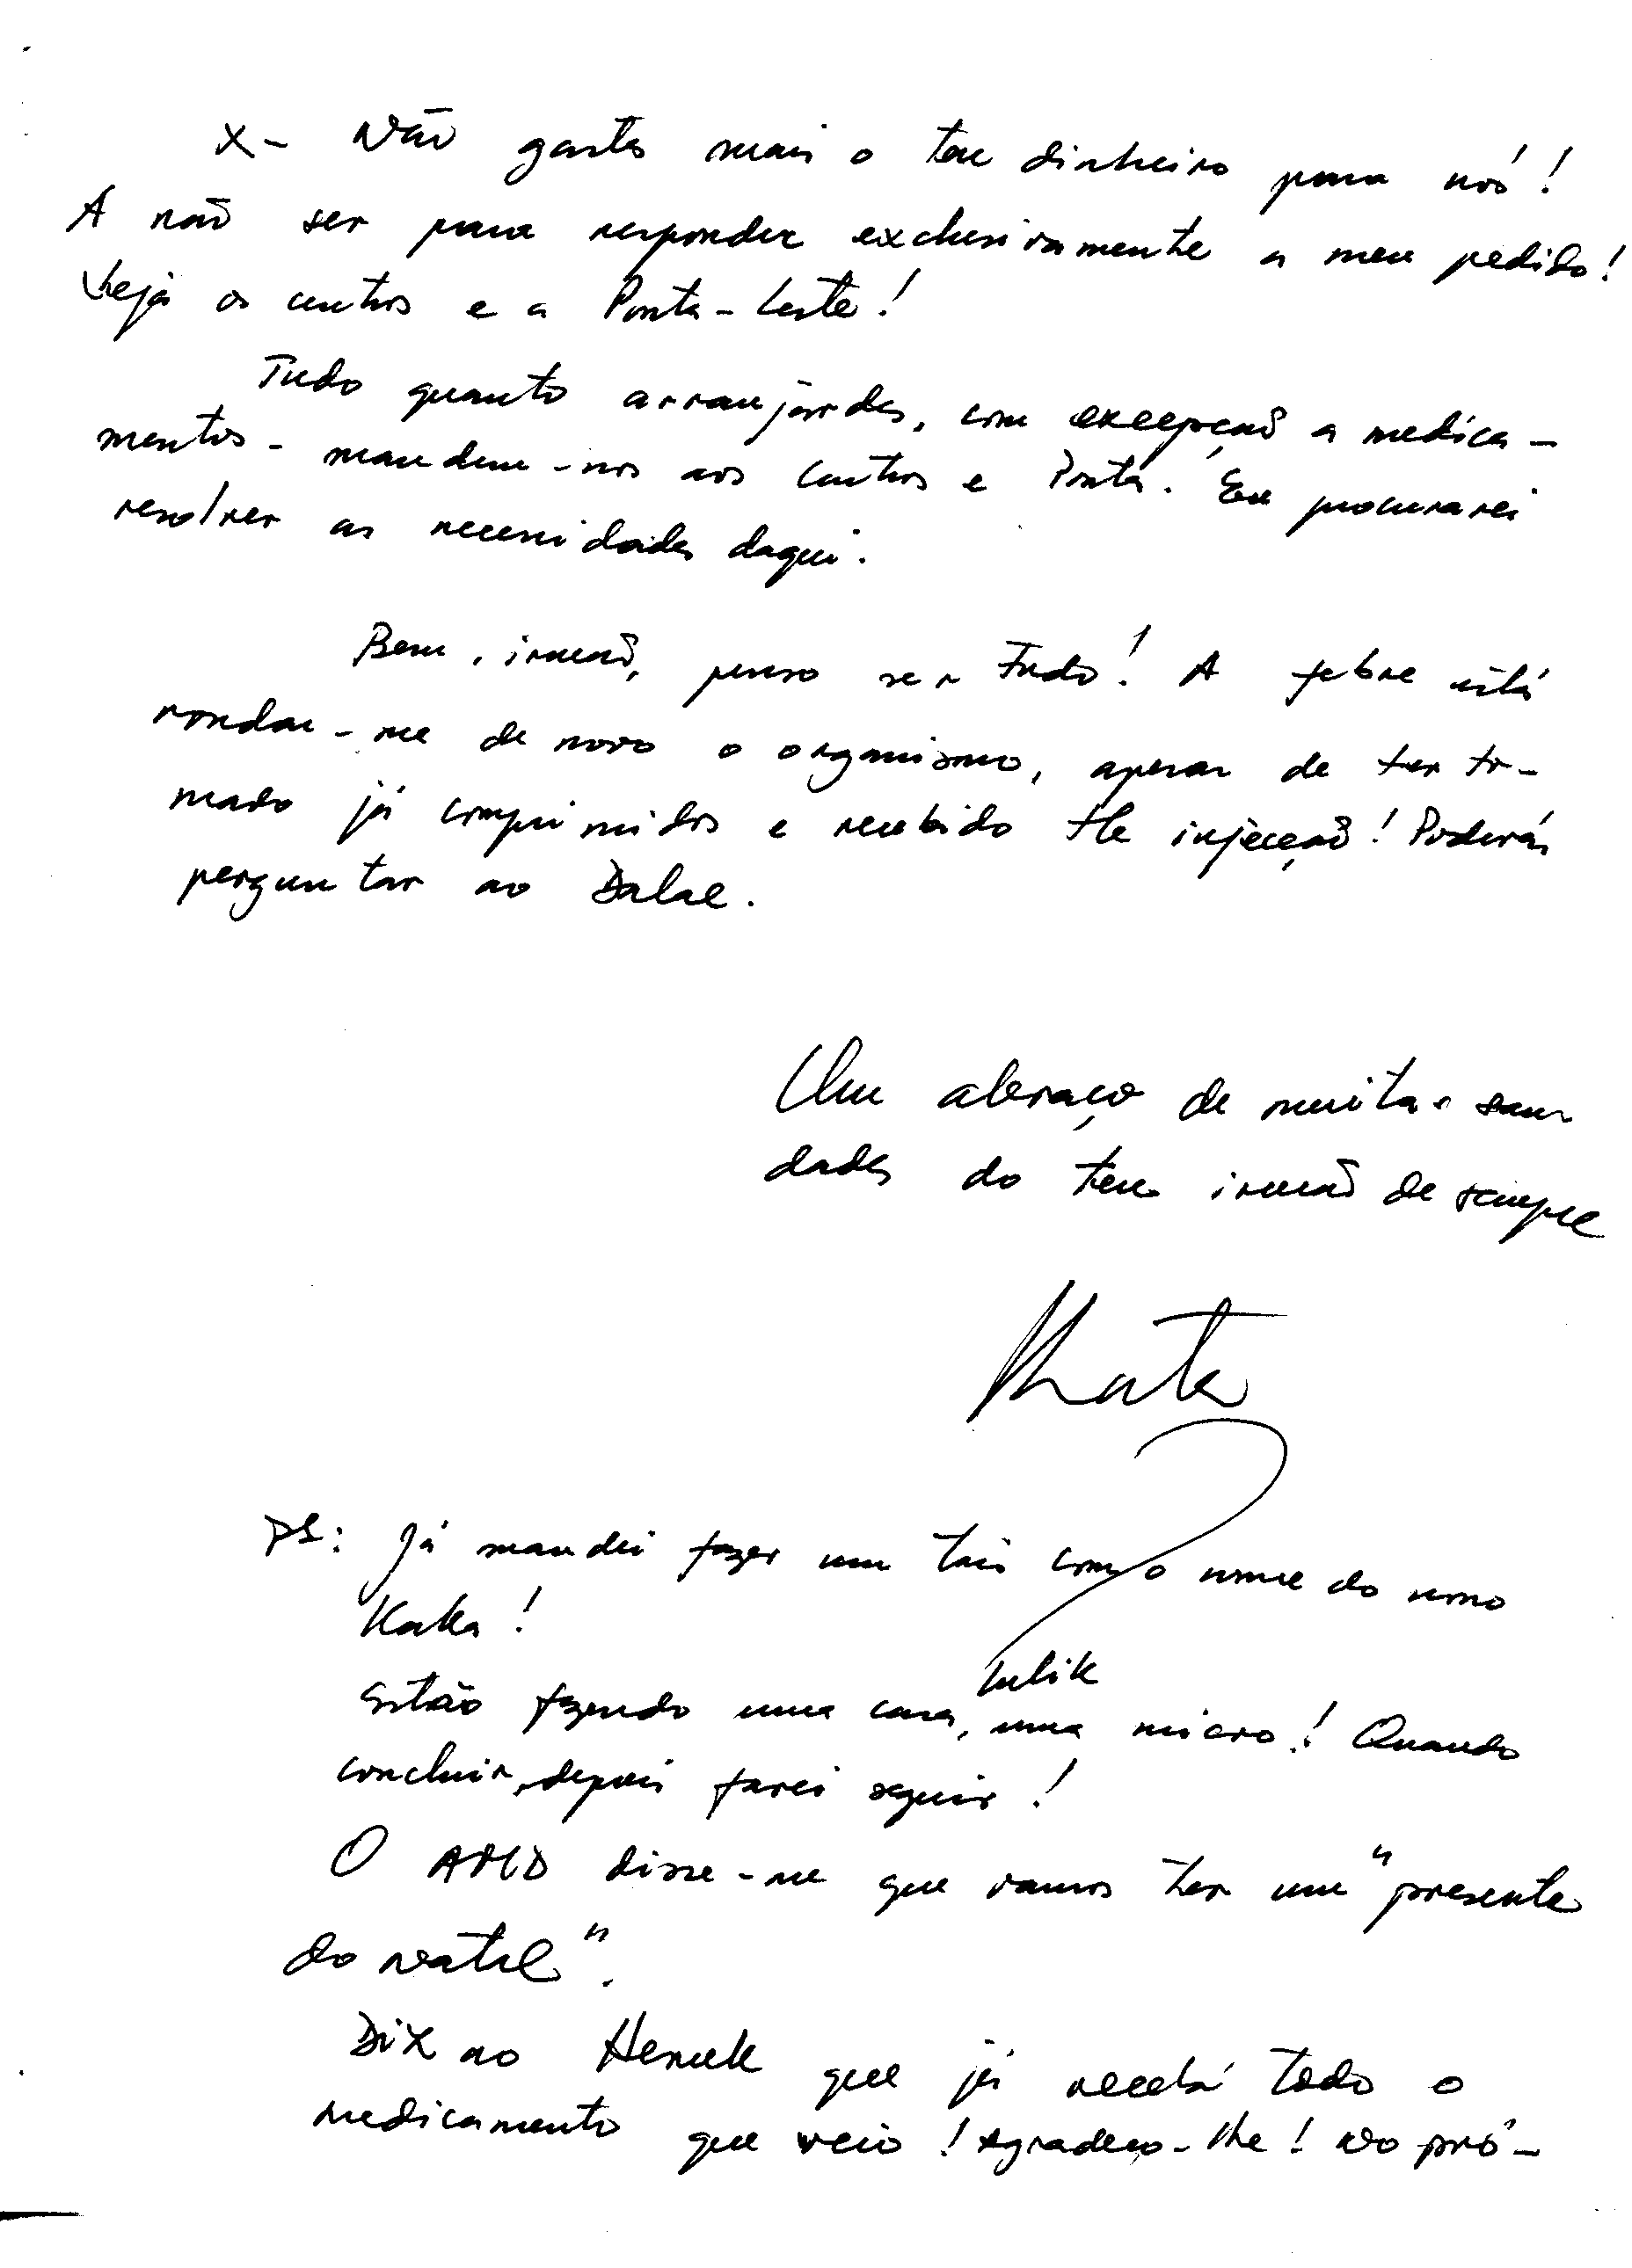 X- Não gastes mais o teu dinheiro para nós!
A não ser para responder exclusivamente a meu pedido!
Veja os centros e a Ponta-Leste!
Tudo quanto arranjardes, com excepção a medica-
mentos - mandem-nos aos Centros e Ponta. Eu procurarei
resolver as necessidades daqui.
Bem, irmão, penso ser tudo! A febre está
rondar-me de novo o organismo, apesar de ter to-
mado já comprimidos e recebido injecção! Poderás
perguntar ao
Um abraço de muitas sau
dades do teu irmão de sempre
PS: Já mandei fazer um tais com o nome do nosso
Kaka!
Estão fazendo uma casa, lulik uma micro! Quando
concluir, depois farei seguir!
O disse-me que vamos ter um "presente
do natal".
Dix ao que já recebi todo o
medicamento que veio! Agradeço-lhe! No pró-